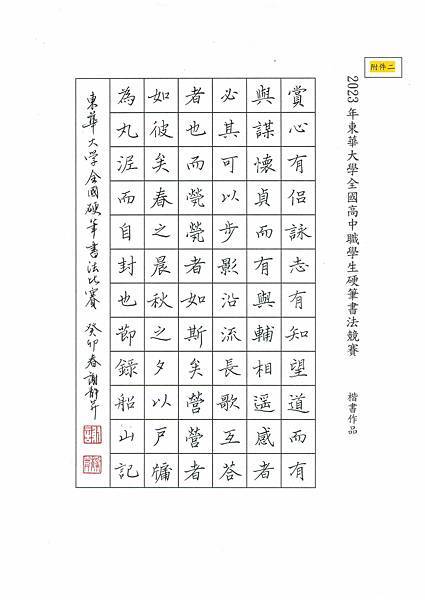 附件二
2023年東華大學全國高中職學生硬筆書法競賽 楷書作品
賞心有侶詠志有知望道而有
與謀懷貞而有與輔相遥感者
必其可以步影沿流長歌互答
者也而煢煢者如斯矣營營者
如彼矣春之晨秋之夕以戶牖
為丸泥而自封也節錄船山記
東華大学全國硬筆書法比賽 癸卯春謝